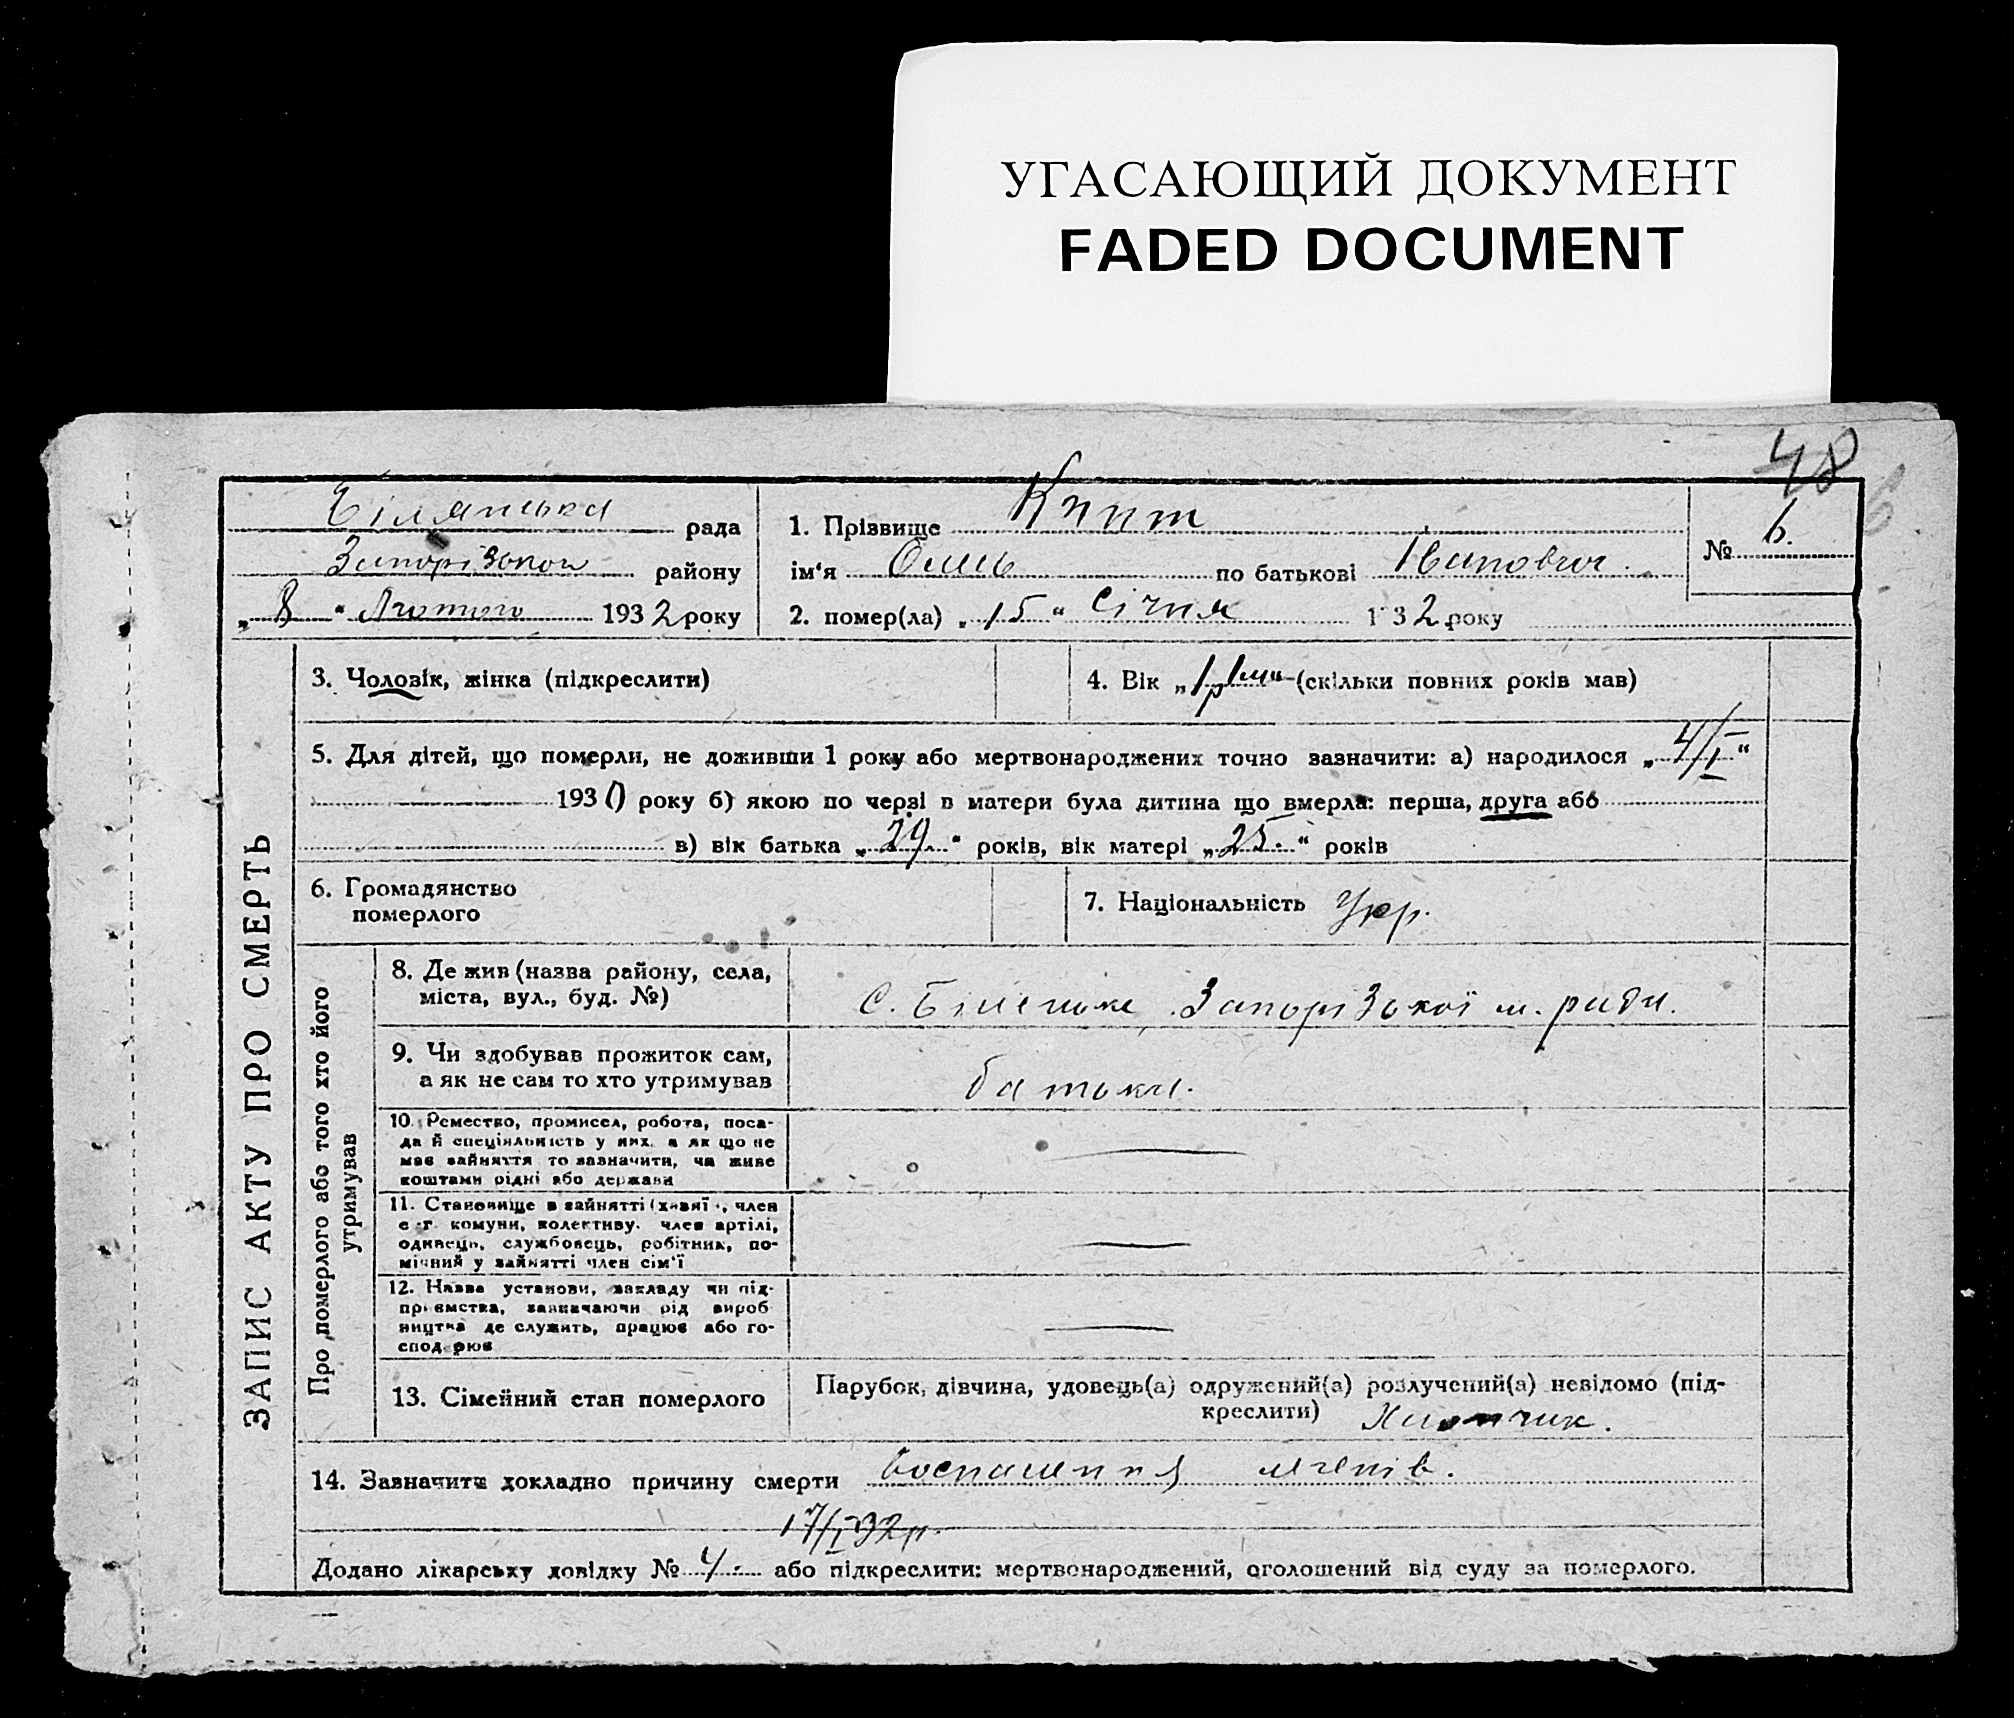 УГАСАЮЩИЙ ДОКУМЕНТ
FADED DOCUMENT
48
6
Біляніська рада
Запорізького району
„ 8 “ Лютого 1932 року
1. Прізвище Книт
ім‘я Олесь по батькові Іванович
№ 6.
2. помер(ла) „ 15 “ Січня 1932 року
ЗАПИС АКТУ ПРО СМЕРТЬ
3. Чоловік, жінка (підкреслити)
4. Вік „ 1 р 1 м “ (скільки повних років мав)
5. Для дітей, що померли, не доживши 1 року або мертвонароджених точно зазначити: а) народилося „ 4/I “
1930 року б) якою по черзі в матери була дитина що вмерла: перша, друга або
в) вік батька „ 29. “ років, вік матері „ 25. “ років
6. Громадянство
померлого
7. Національність Укр.
Про померлого або того хто його
утримував
8. Де жив (назва району, села,
міста, вул., буд. №)
с. Біленьке, Запорізької м. ради.
9. Чи здобував прожиток сам,
а як не сам то хто утримував
батьки.
10. Ремество, промисел, робота, поса-
да й спеціяльність у них, а як що не
має зайняття то зазначити, чи живе
коштами рідні або держави
11. Становище в зайнятті (хазяї, член
с.-г. комуни, колективу, член артілі,
одинець, службовець, робітник, по-
мічний у зайнятті член сім‘ї
12. Назва установи, закладу чи під-
приємства, зазначаючи рід вироб
ництва де служить, працює або го-
сподарює
13. Сімейний стан померлого
Парубок, дівчина, удовець(а) одружений(а) розлучений(а) невідомо (під-
креслити) Хлопчик.
14. Зазначите докладно причину смерти воспаления легенів.
17/I 32 р.
Додано лікарську довідку № 4. або підкреслити: мертвонароджений, оголошений від суду за померлого.